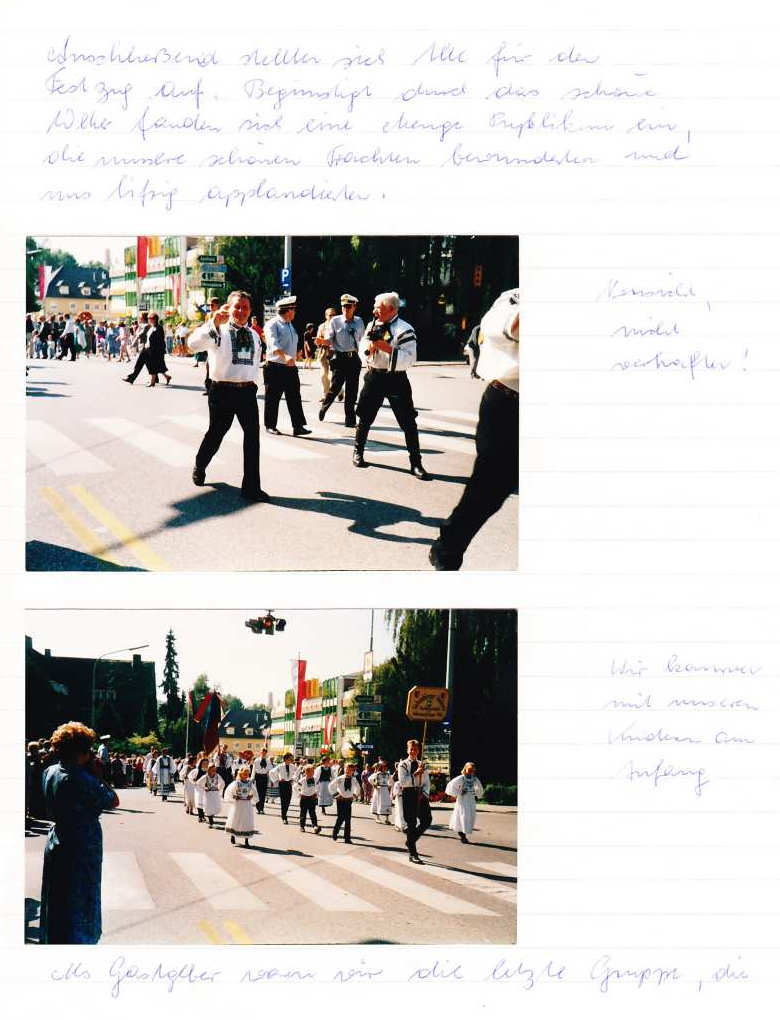 Anschließend stellten sich Alle für den
Festzug auf. Begünstigt durch das schöne
Wetter fanden sich eine Menge Publikum ein,
die unsere schönen Trachten bewunderten und
uns eifrig applaudierten.
nicht
verhaften!
P
Wir kommen
mit unseren
Kindern am
Anfang
Als Gastgeber waren wir die letzte Gruppe, die